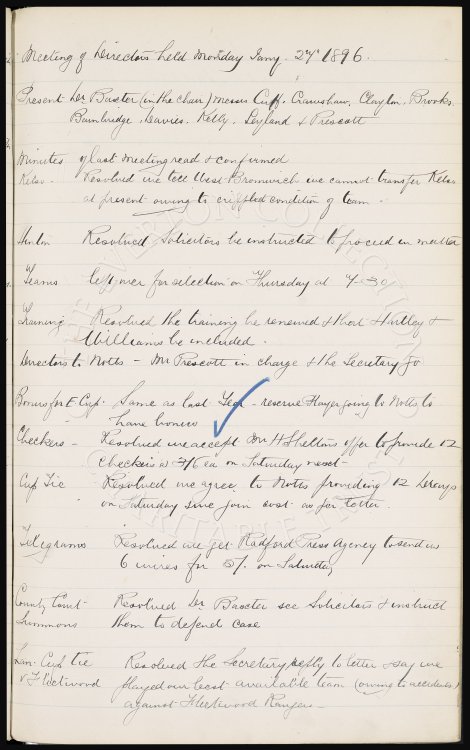 Meeting of Directors held Monday Jany. 27th 1896.
Present Dr Baxter (in the chair) Messrs Cuff, Crawshaw, Clayton, Brooks
Bainbridge, Davies, Kelly, Leyland & Prescott
Minutes of last meeting read & confirmed
Kelso - Resolved we tell West Bromwich we cannot transfer Kelso
at present owing to crippled condition of team.
Resolved Solicitors be instructed to proceed in matter
Teams left over for selection on Thursday at 7-30
Training - Resolved the training be renewed & that Hartley &
Williams be included.
Directors to Notts - Mr Prescott in charge & the Secretary go
Bonus for E. Cup. Same as last Year - reserve Player going to Notts to
have bonus
Checkers - Resolved we accept Mr H Sheltons offer to provide 12
checkers @ 7/6 ea on Saturday next -
Cup Tie - Resolved we agree to Notts providing 12
on Saturday & we join cost as per letter.
Telegrams Resolved we get Radford Press Agency to send us
6 wires for 5/. on Saturday
County Court Resolved Dr Baxter see Solicitors & instruct
Summons them to defend case
Lan. Cup tie Resolved the Secretary reply to letter & say we
v Fleetwood played our best available team (owing to accidents)
against Fleetwood Rangers -
THE EVERTON COLLECTION
CHARITABLE TRUST